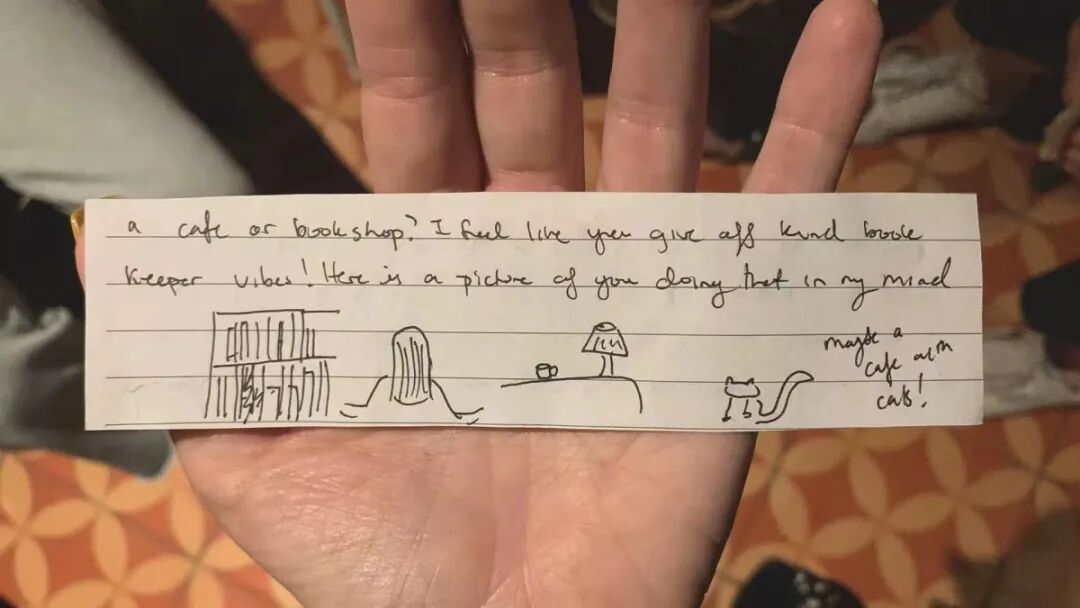 a cafe or bookshop? I feel like you give off kind book
keeper vibes! Here is a picture of you doing that in my mind
maybe a
cafe with
cats!